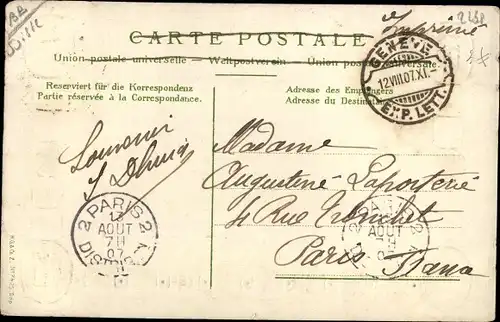 Imprimé
CARTE POSTALE
Union postale universelle Weltpostverein Union postale universale.
Reserviert für die Korrespondenz
Partie réservée à la Correspondance.
Adresse des Empfängers
Adresse du Destinataire
GENÈVE
12.VIII.07.XI.
EXP. LETT.
Souvenir
Madame
Augustine Laporterie
4 Rue Tronchet
Paris
2 PARIS 2
13
AOUT
7H
07
DISTRIB
PARIS 2
AOUT